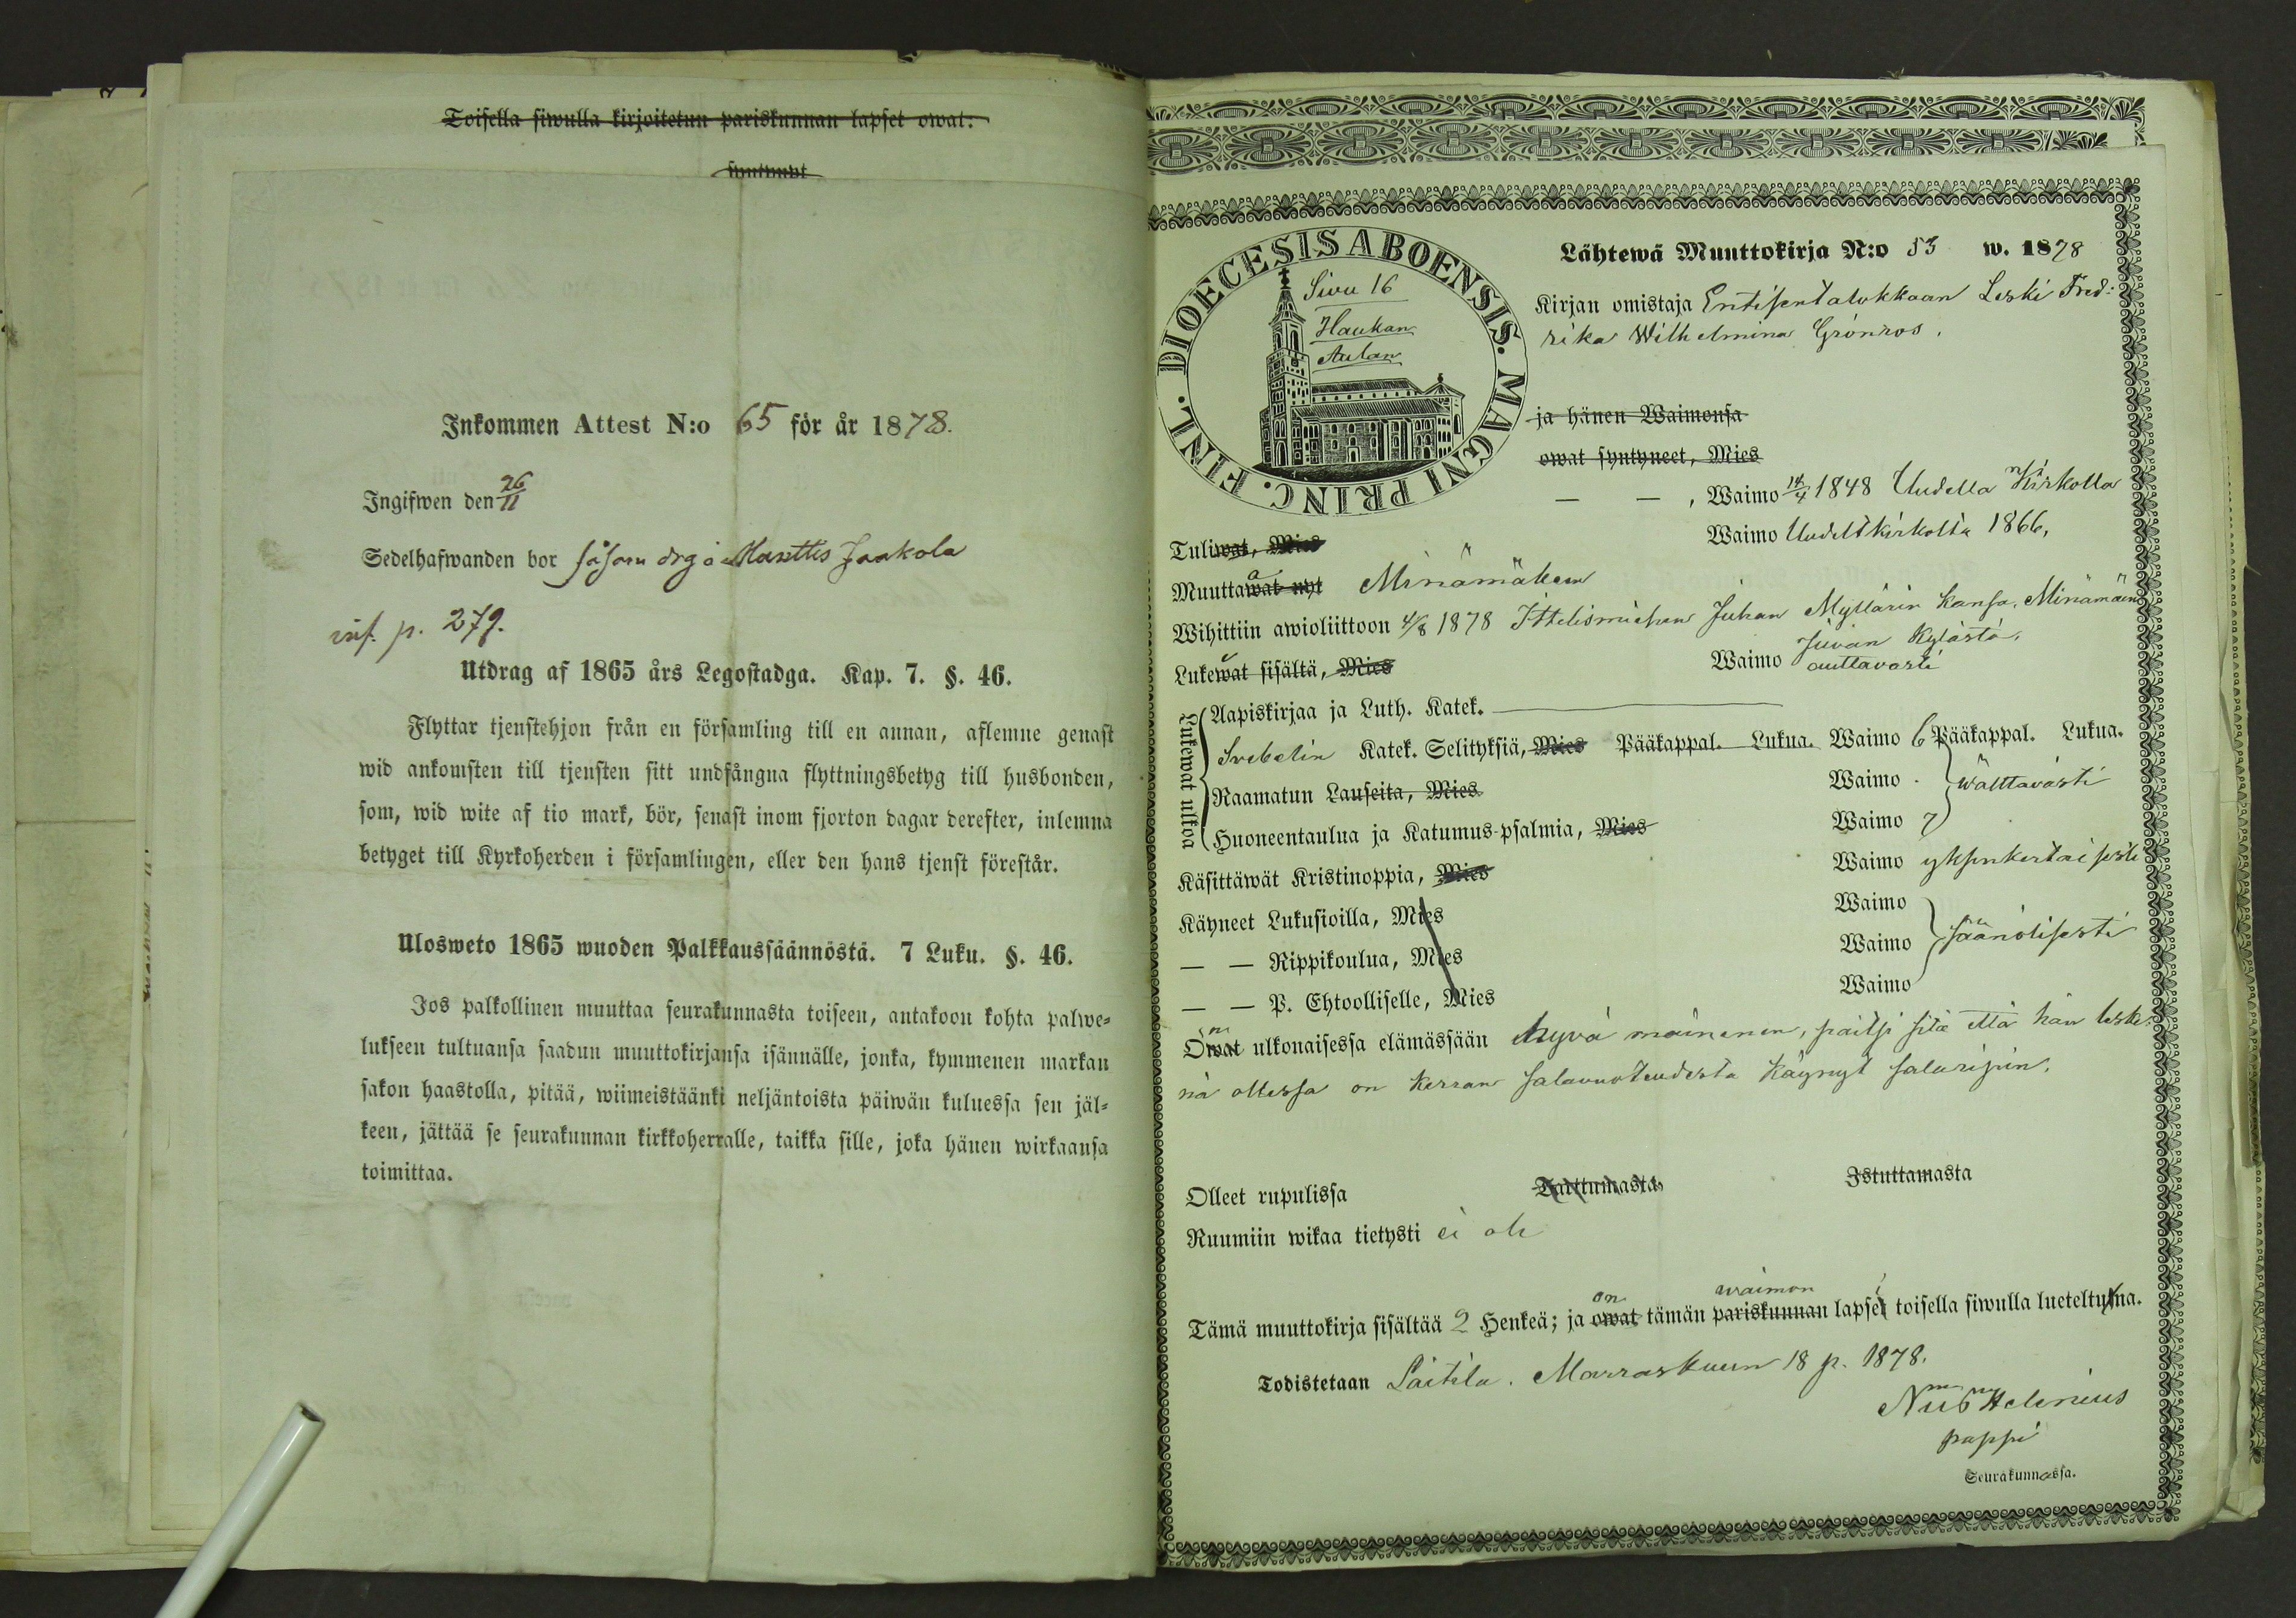 Toisella siwulla kirjoitetun pariskunnan lapset owat:
syntynyt
Inkommen Attest N:o 65 för år 1878.
Ingifwen den 26/11
Sedelhafwanden bor såsom drg å Masttis Jaakola
inf. p. 279.
Utdrag af 1865 års Legostadga. Kap. 7. §. 46.
Flyttar tjenstehjon från en församling till en annan, aflemne genast
wid ankomsten till tjensten sitt undfångna flyttningsbetyg till husbonden,
som, wid wite af tio mark, bör, senast inom fjorton dagar derefter, inlemna
betyget till Kyrkoherden i församlingen, eller den hans tjenst förestår.
Ulosweto 1865 wuoden Palkkaussäännöstä. 7 Luku. §. 46.
Jos palkollinen muuttaa seurakunnasta toiseen, antakoon kohta palwe-
lukseen tultuansa saadun muuttokirjansa isännälle, jonka, kymmenen markan
sakon haastolla, pitää, wiimeistäänki neljäntoista päiwän kuluessa sen jäl-
keen, jättää se seurakunnan kirkkoherralle, taikka sille, joka hänen wirkaansa
toimittaa.
DIOECESIS ABOENSIS. MAGNI PRINC. FINL.
Sivu 16
Haukan
Aulan
Lähtewä Muuttokirja N:o 53 w. 1878
Kirjan omistaja Entisen talokkaan Leski Fred:
rika Wilhelmina Grönros.
ja hänen Waimonsa
owat syntyneet, Mies
— — , Waimo 14/4 1848 Uudella Kirkolla
Tuliwat, Mies Waimo Uudeltkirkolta 1866,
Muuttawat nyt a Minämäkeen
Wihittiin awioliittoon 4/8 1878 Ittelismiehen Juhan Myllärin kansa, Minämäen
Juvan Kylästä.
Lukewat sisältä, Mies Waimo auttavasti
Lukewat ulkoa
Aapiskirjaa ja Luth. Katek.
Svebelin Katek. Selityksiä, Mies Pääkappal. Lukua. Waimo 6 Pääkappal. Lukua.
Raamatun Lauseita, Mies Waimo wälttävästi
Huoneentaulua ja Katumus-psalmia, Mies Waimo 7
Käsittäwät Kristinoppia, Mies Waimo yksinkertaisesti
Käyneet Lukusioilla, Mies Waimo
— — Rippikoulua, Mies Waimo säänölisesti
— — P. Ehtoolliselle, Mies Waimo
Owat n ulkonaisessa elämässään hyvä mainenen, paitsi sitä että hän leske-
nä ollessa on kerran salavuoteudesta käynyt salaripin.
Olleet rupulissa Tarttumasta Istuttamasta
Ruumiin wikaa tietysti ei ole
on waimon i
Tämä muuttokirja sisältää 2 Henkeä; ja owat tämän pariskunnan lapset toisella siwulla lueteltuna.
Todistetaan Laitila. Marraskuun 18 p. 1878.
Helenius
pappi
Seurakunnassa.